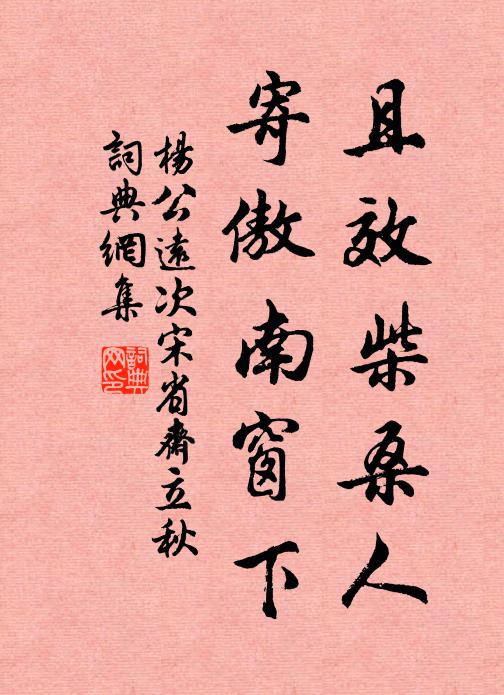 且效柴桑人
寄傲南窗下
楊公遠次宋省齋立秋
詞典網集
詞典網印